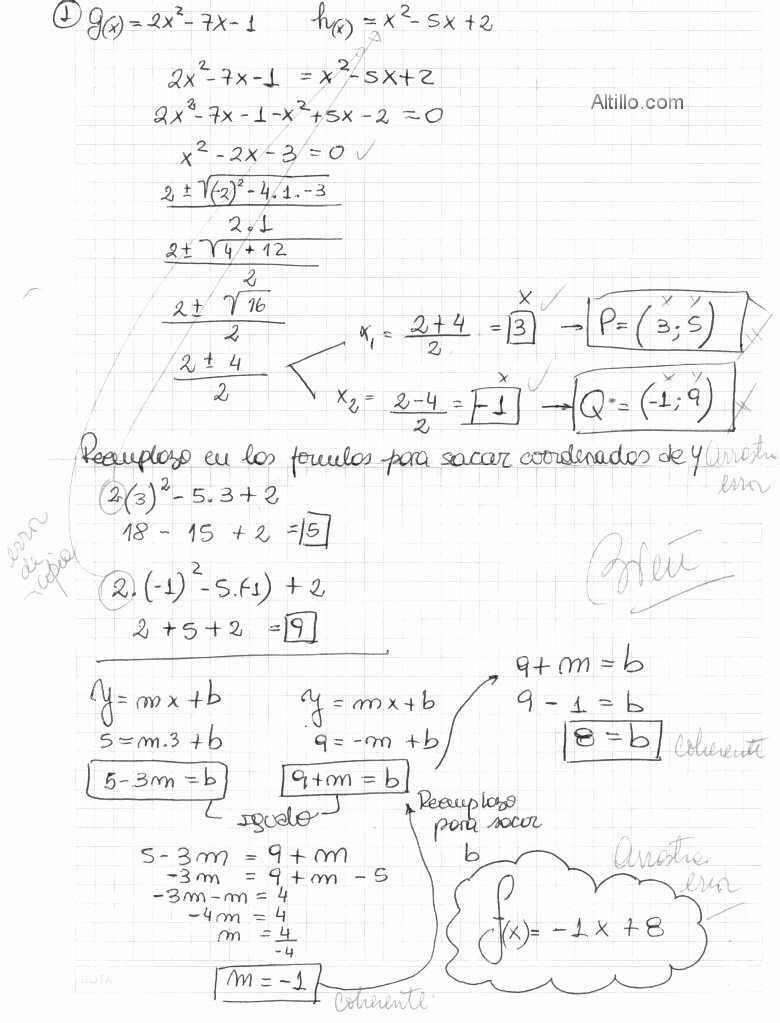 ① g(x) = 2x² - 7x - 1   h(x) = x² - 5x + 2
2x² - 7x - 1 = x² - 5x + 2
Altillo.com
2x² - 7x - 1 - x² + 5x - 2 = 0
x² - 2x - 3 = 0 ✓
2 ± √(-2)² - 4.1.-3
2.1
2 ± √4 + 12
2
2 ± √16
2
2 ± 4
2
x₁ = 2+4/2 = 3 → P = (3; 5)
x ✓ x y
x₂ = 2-4/2 = -1 → Q = (-1; 9)
x ✓ x y
Reemplazo en las formulas para sacar coordenadas de y
Arrastra
error
2(3)² - 5.3 + 2
18 - 15 + 2 = 5
error
de
copia
2.(-1)² - 5.(-1) + 2
2 + 5 + 2 = 9
Bien
y = mx + b
5 = m.3 + b
5 - 3m = b
y = mx + b
9 = -m + b
9 + m = b
Igualo
9 + m = b
9 - 1 = b
8 = b
coherente
Reemplazo
para sacar
b
5 - 3m = 9 + m
-3m = 9 + m - 5
-3m - m = 4
-4m = 4
m = 4/-4
m = -1
coherente
Arrastra
error
f(x) = -1x + 8